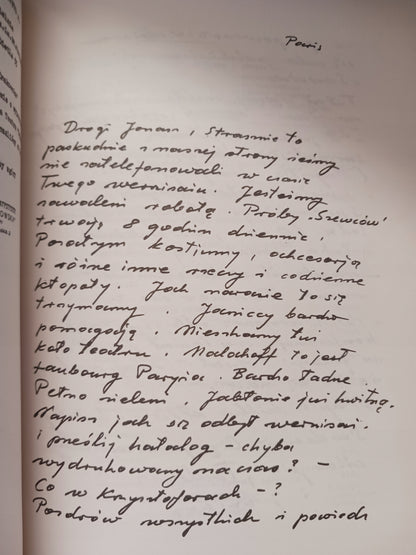 Paris
Drogi Jonasz, Strasznie to
paskudnie z naszej strony żeśmy
nie zatelefonowali w czasie
Twego wernisażu. Jesteśmy
zawaleni robotą. Próby „Szewców”
trwają 8 godzin dziennie.
Poza tym kostjumy,
i różne inne rzeczy i codzienne
kłopoty. Jak na razie to się
trzymamy. Janiccy bardzo
pomogają. Mieszkamy tuż
koło teatru. Malakoff to jest
faubourg Paryża. Bardzo ładne.
Pełno zieleni. Jabłonie już kwitną.
Napisz jak się odbył wernisaż.
i prześlij katalog – chyba
wydrukowany na czas? –
Co w Krzysztoforach – ?
Pozdrów wszystkich i powiedz